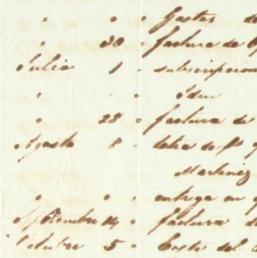 " " - Gastos de
" 30 - factura de
Julio 1 - subscripcion
" Iden
" 28 - factura de
Agosto 8 - letra de
Martinez
" " - entrega en
Septiembre 14 - factura de
Octubre 5 - Coste del